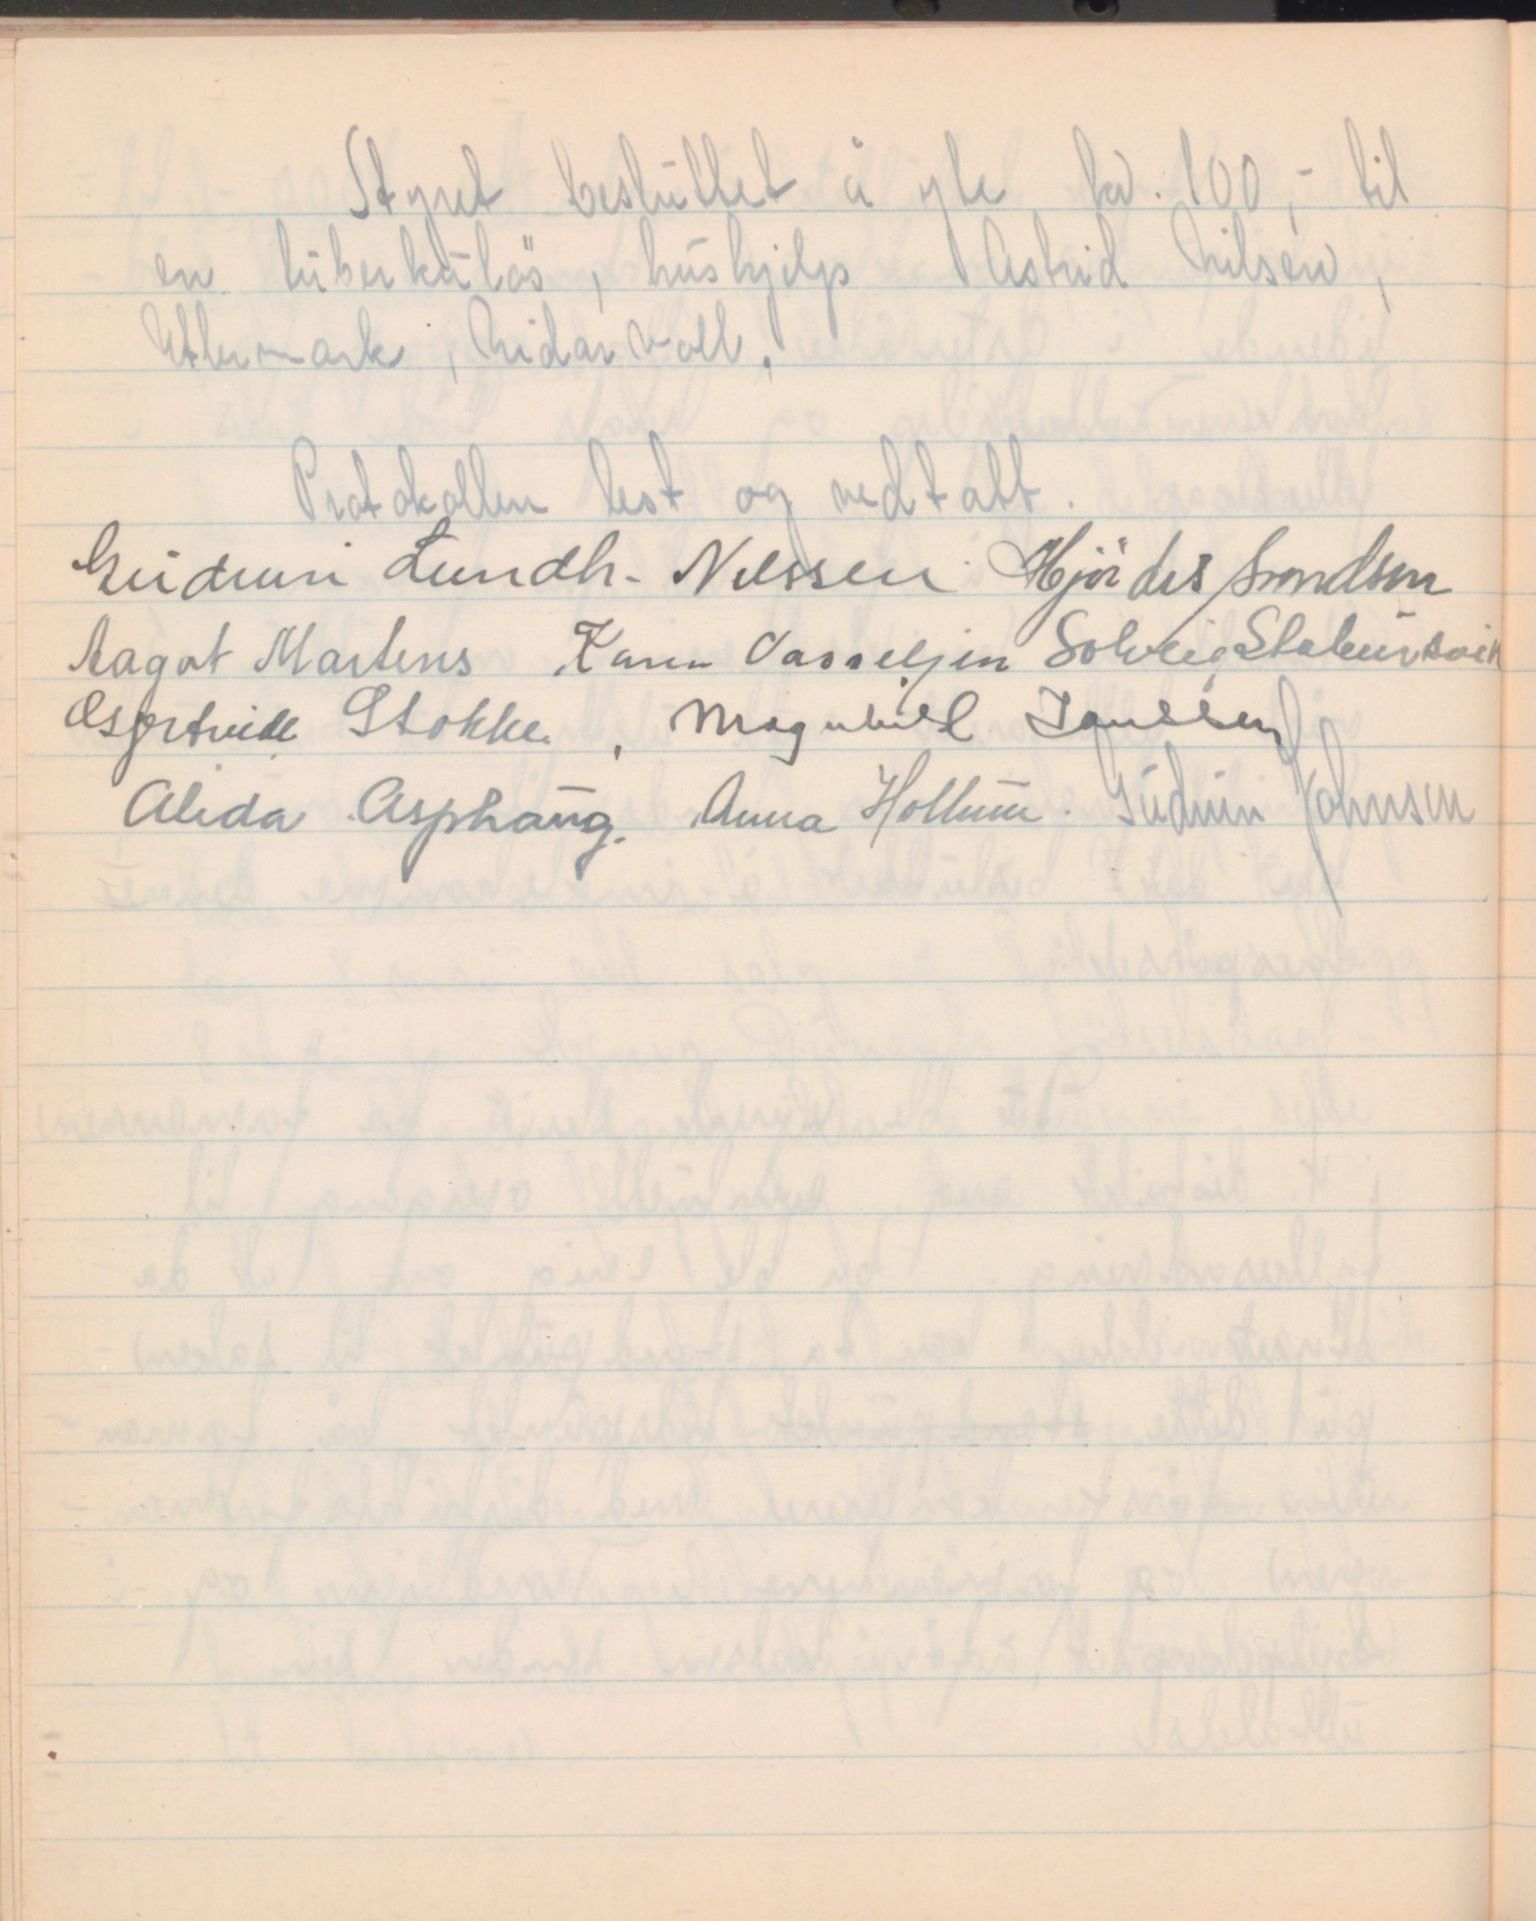 Styret besluttet å yte kr. 100,- til
en tuberkuløs, hushjelp Astrid Nilsen,
Utlermark, Nidarvoll.
Protokollen lest og vedtatt.
Gudrun Lundh-Nilssen Hjördis Svendsen
Aagot Martens Karen Vasseljen Solveig Stabursvik
Stokke, Magnhild Paulsen
Alida Asphaug. Anna Hollum. Gudrun Johnsen